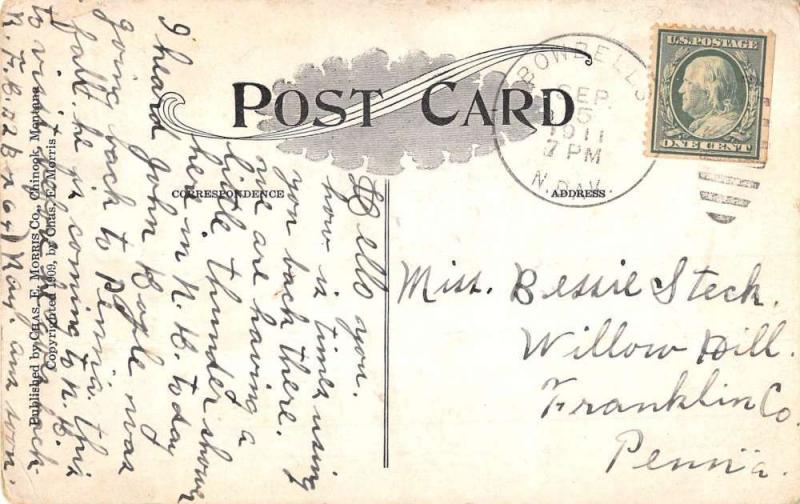 POST CARD
CORRESPONDENCE
ADDRESS
BOWBELLS
SEP
5
1911
7 PM
N. DAK.
U.S. POSTAGE
ONE CENT
Hello you.
how is times using
you back there.
we are having a
little thunder shower
here in N. D. today
I heard John Bogle was
going back to Penn'a. this
fall. he is coming to N. D.
to visit
back
soon.
Published by CHAS. E. MORRIS Co., Chinook, Montana
Copyrighted 1909, by Chas. E. Morris
Miss. Bessie Steck.
Willow Hill.
Franklin Co.
Penn'a.